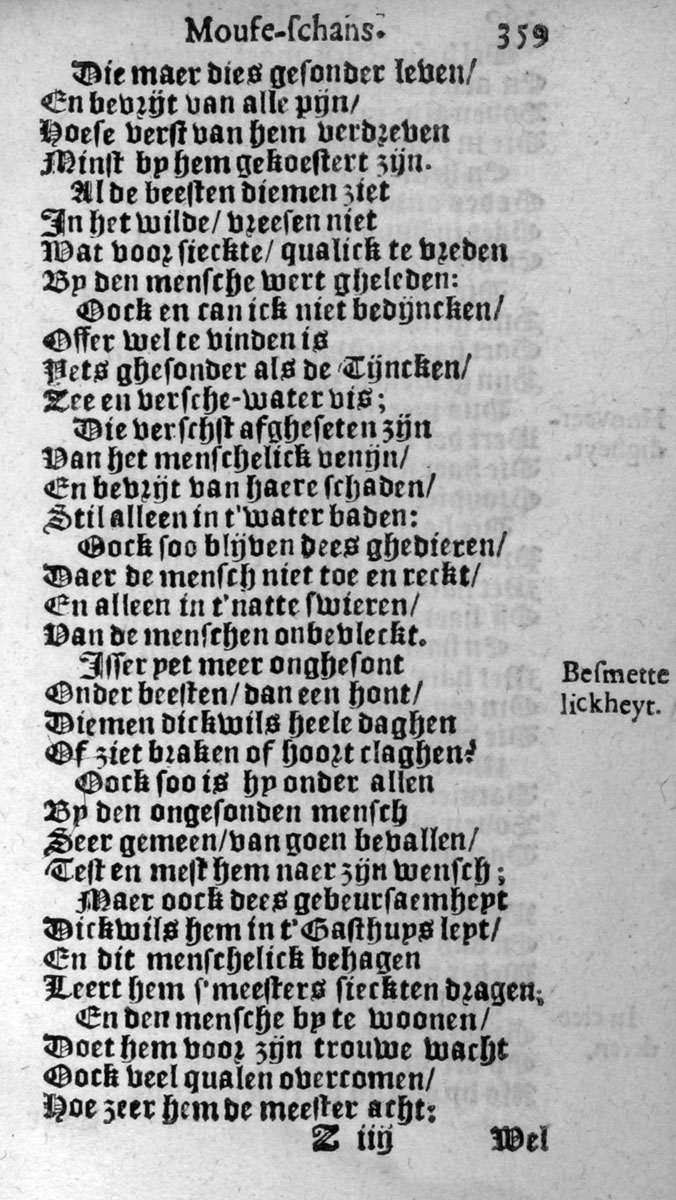 Mouse-schans. 359
Die maer dies gesonder leven/
En bevrijt van alle pijn/
Hoese verst van hem verdreven
Minst by hem gekoestert zijn.
Al de beesten diemen ziet
In het wilde/ vreesen niet
Wat voor sieckte/ qualick te vreden
By den mensche wert gheleden:
Oock en can ick niet bedijncken/
Offer wel te vinden is
Yets ghesonder als de Tijncken/
Zee en versche-water vis;
Die verschst afgheseten zijn
Van het menschelick venijn/
En bevrijt van haere schaden/
Stil alleen in t'water baden:
Oock soo blijven dees ghedieren/
Daer de mensch niet toe en reckt/
En alleen in t'natte swieren/
Van de menschen onbevleckt.
Isser yet meer onghesont
Onder beesten/ dan een hont/
Diemen dickwils heele daghen
Of ziet braken of hoort claghen?
Oock soo is hy onder allen
By den ongesonden mensch
Seer gemeen/ van goen bevallen/
Test en mest hem naer zijn wensch;
Maer oock dees gebeursaemheyt
Dickwils hem in t'Gasthuys leyt/
En dit menschelick behagen
Leert hem s'meesters sieckten dragen;
En den mensche by te woonen/
Doet hem voor zijn trouwe wacht
Oock veel qualen overcomen/
Hoe zeer hem de meester acht:
Besmette
lickheyt.
Z iij Wel